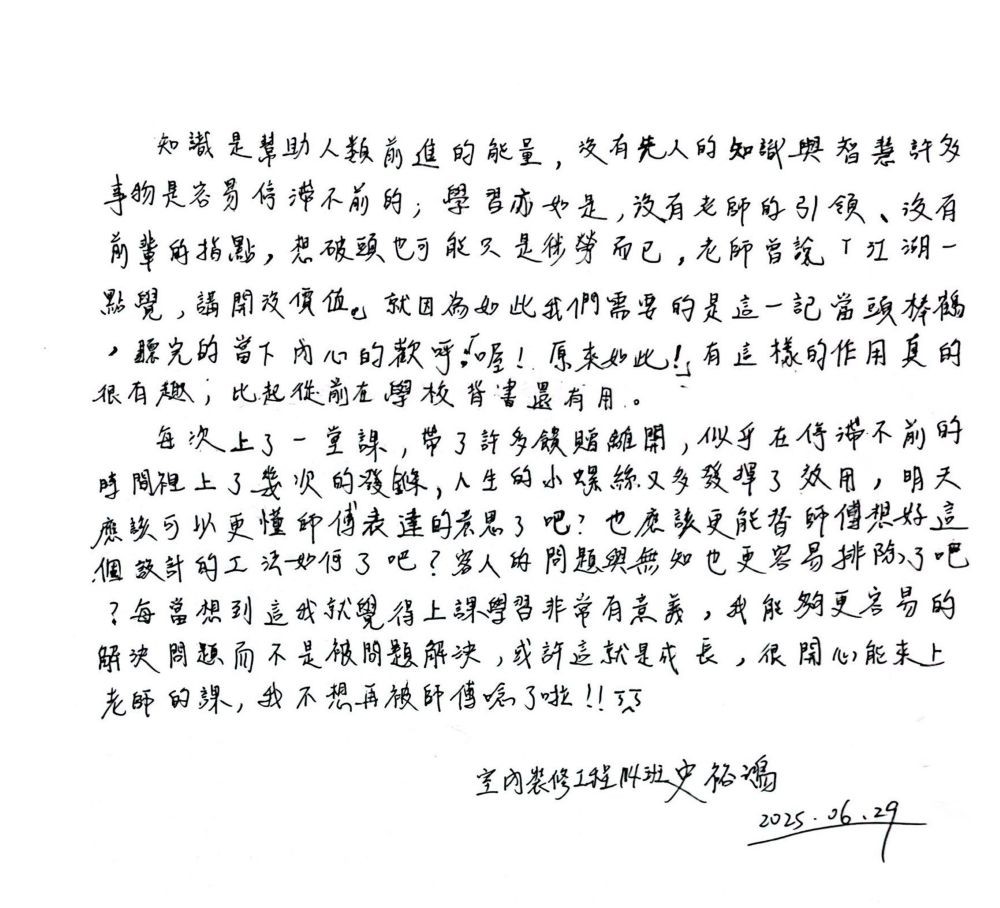 知識是幫助人類前進的能量，沒有先人的知識與智慧許多
事物是容易停滯不前的；學習亦如是，沒有老師的引領、沒有
前輩的指點，想破頭也可能只是徒勞而已，老師曾說「江湖一
點覺，講開沒價值」就因為如此我們需要的是這一記當頭棒鶴
，聽完的當下內心的歡呼：「喔！原來如此！」有這樣的作用真的
很有趣；比起從前在學校背書還有用。
每次上了一堂課，帶了許多饋贈離開，似乎在停滯不前的
時間裡上了幾次的發條，人生的小螺絲又多發揮了效用，明天
應該可以更懂師傅表達的意思了吧？也應該更能替師傅想好這
個設計的工法如何了吧？客人的問題與無知也更容易排除了吧
？每當想到這我就覺得上課學習非常有意義，我能夠更容易的
解決問題而不是被問題解決，或許這就是成長，很開心能來上
老師的課，我不想再被師傅唸了啦！！ㄎㄎ
室內裝修工程114班史裕鴻
2025.06.29